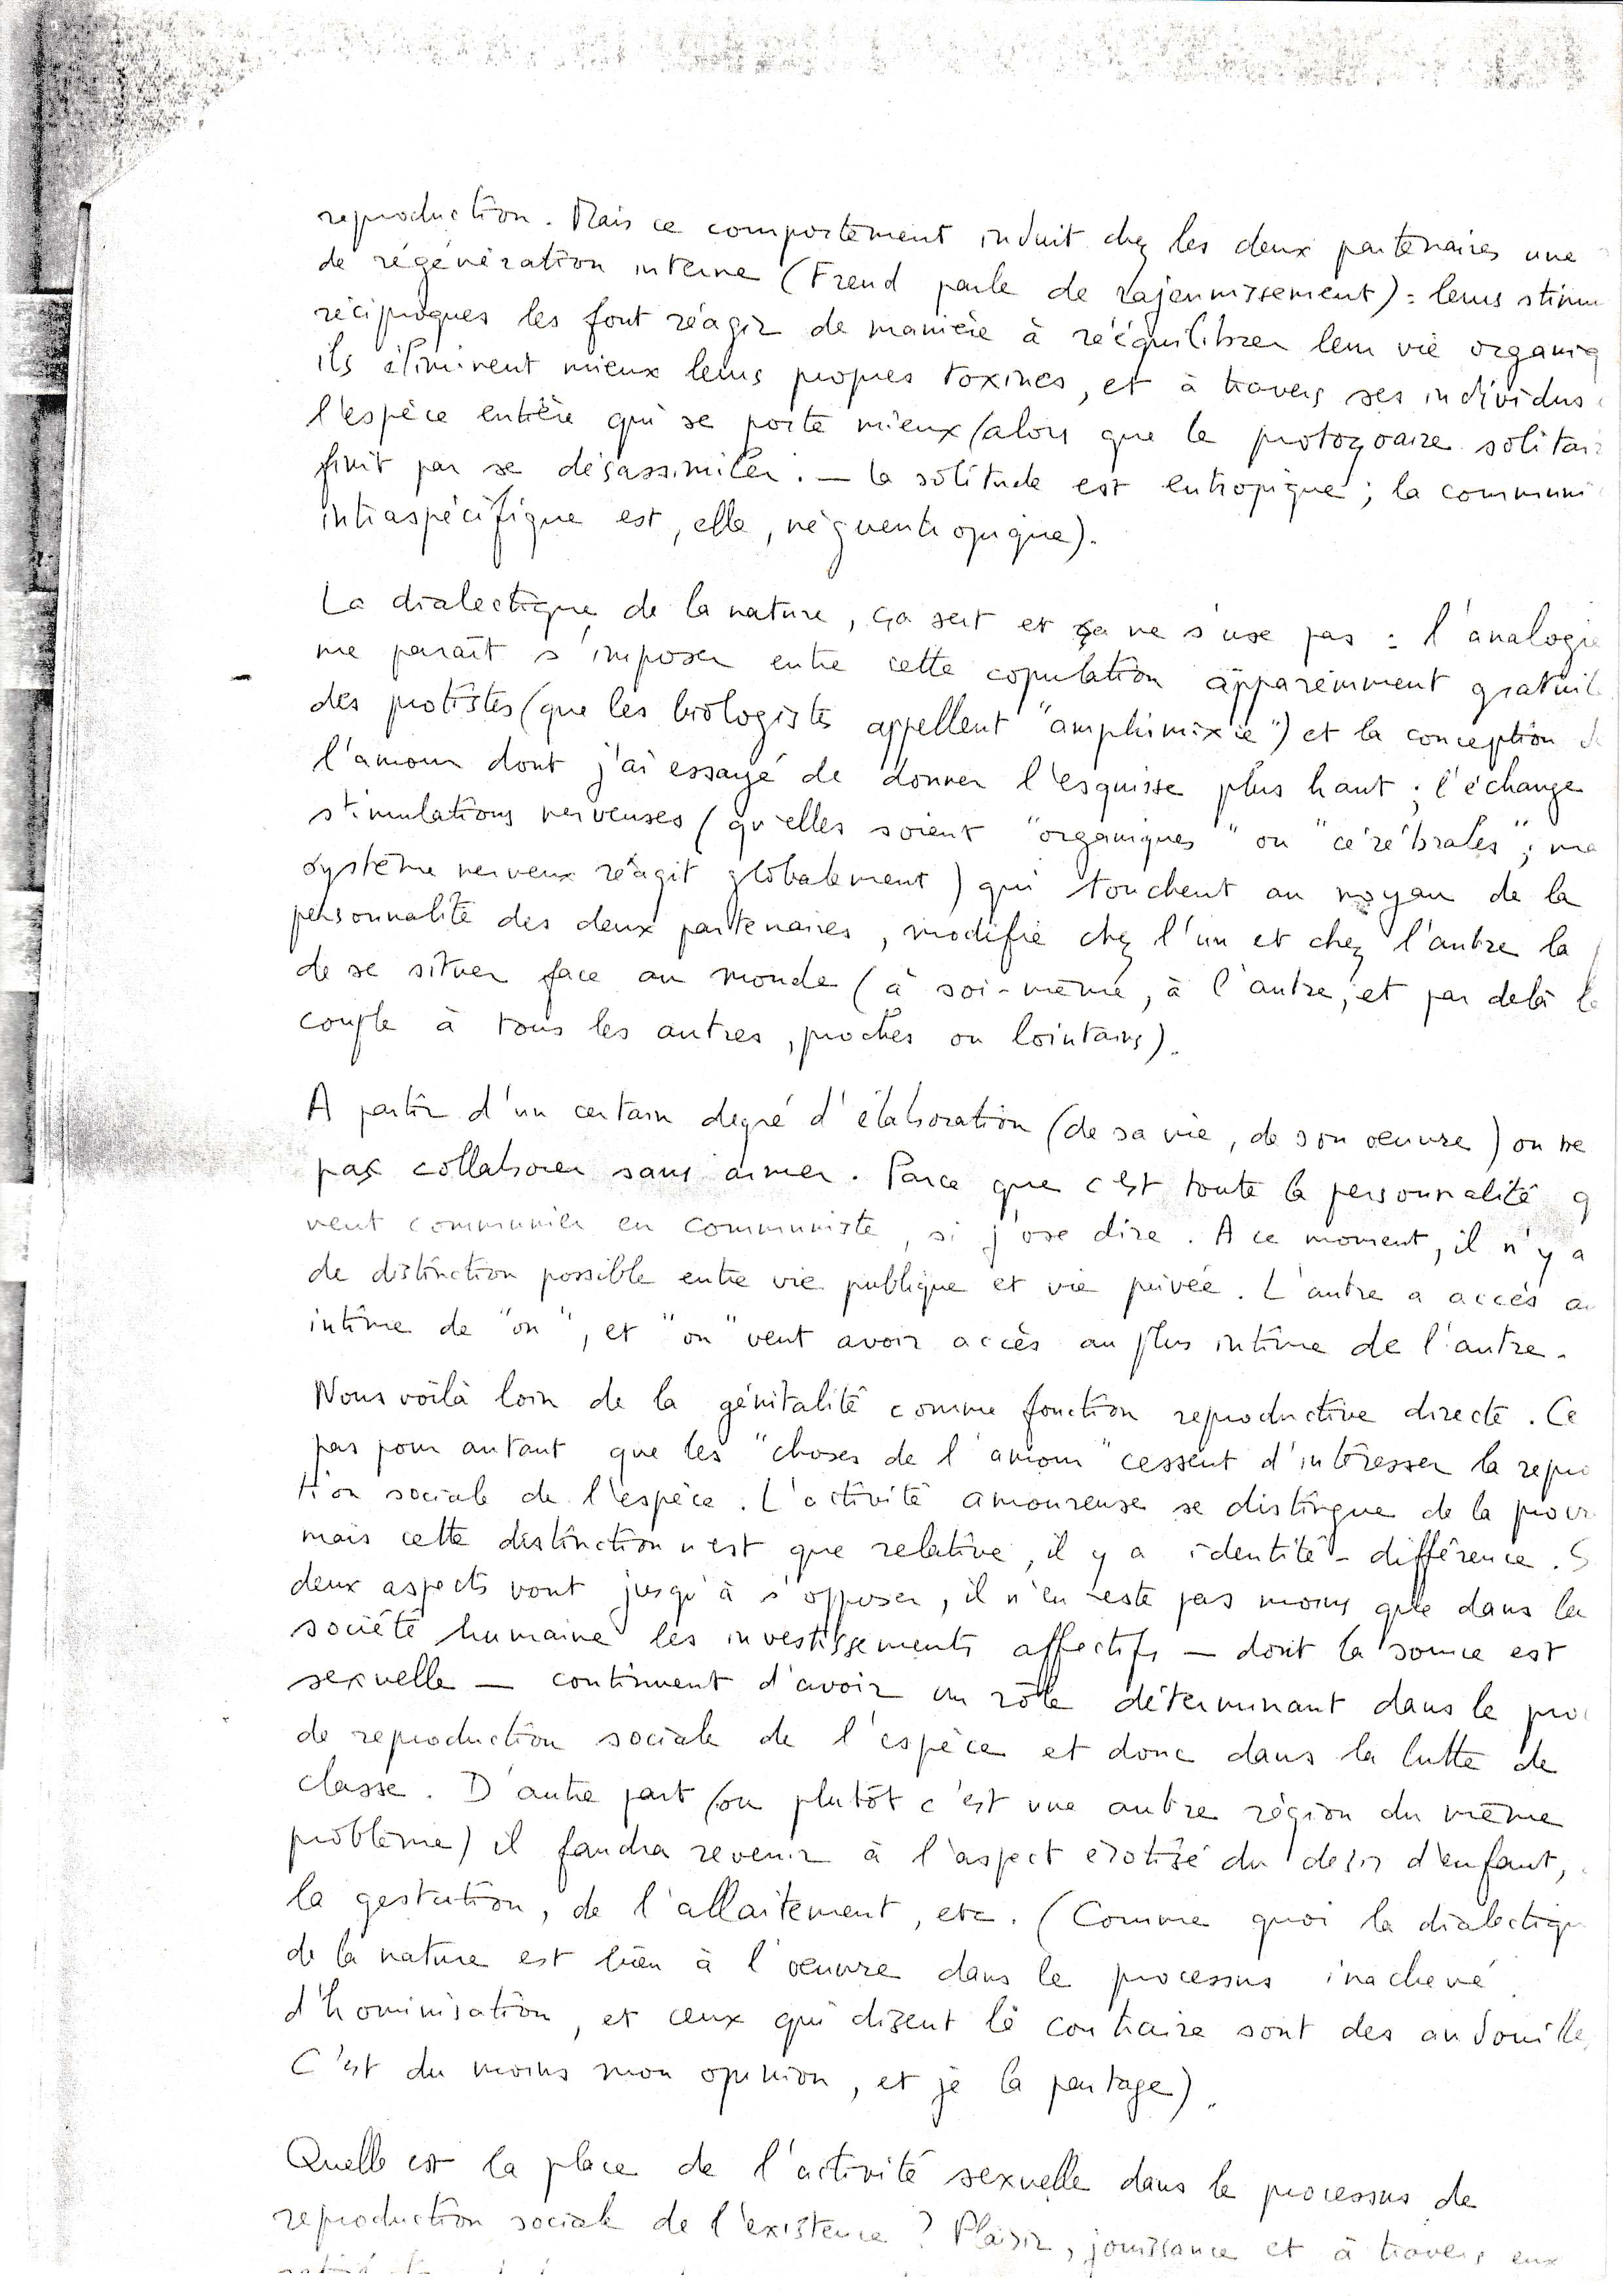 reproduction. Mais ce comportement induit chez les deux partenaires une
de régénération interne (Freud parle de rajeunissement) : leurs stimu
réciproques les font réagir de manière à rééquilibrer leur vie organiq
ils éliminent mieux leurs propres toxines, et à travers ses individus
l'espèce entière qui se porte mieux (alors que le protozoaire solitair
finit par se désassimiler. — la solitude est entropique ; la communi
intraspécifique est, elle, néguentropique).
La dialectique de la nature, ça sert et ça ne s'use pas : l'analogie
me paraît s'imposer entre cette copulation apparemment gratuite
des protistes (que les biologistes appellent "amphimixie") et la conception d
l'amour dont j'ai essayé de donner l'esquisse plus haut ; l'échange
stimulations nerveuses (qu'elles soient "organiques" ou "cérébrales" ; ma
système nerveux réagit globalement) qui touchent au noyau de la
personnalité des deux partenaires, modifie chez l'un et chez l'autre la
de se situer face au monde (à soi-même, à l'autre, et par delà le
couple à tous les autres, proches ou lointains).
A partir d'un certain degré d'élaboration (de sa vie, de son oeuvre) on ne
pas collaborer sans aimer. Parce que c'est toute la personnalité q
veut communier en communiste, si j'ose dire. A ce moment, il n'y a
de distinction possible entre vie publique et vie privée. L'autre a accès au
intime de "on", et "on" veut avoir accès au plus intime de l'autre.
Nous voilà loin de la génitalité comme fonction reproductive directe. Ce
pas pour autant que les "choses de l'amour" cessent d'intéresser la repro
tion sociale de l'espèce. L'activité amoureuse se distingue de la procr
mais cette distinction n'est que relative, il y a identité-différence. S
deux aspects vont jusqu'à s'opposer, il n'en reste pas moins que dans la
société humaine les investissements affectifs — dont la source est
sexuelle — continuent d'avoir un rôle déterminant dans le pro
de reproduction sociale de l'espèce et donc dans la lutte de
classe. D'autre part (ou plutôt c'est une autre région du même
problème) il faudra revenir à l'aspect érotisé du désir d'enfant,
la gestation, de l'allaitement, etc. (Comme quoi la dialectiqu
de la nature est bien à l'oeuvre dans le processus inachevé
d'hominisation, et ceux qui disent le contraire sont des andouilles
C'est du moins mon opinion, et je la partage).
Quelle est la place de l'activité sexuelle dans le processus de
reproduction sociale de l'existence ? Plaisir, jouissance et à travers eux